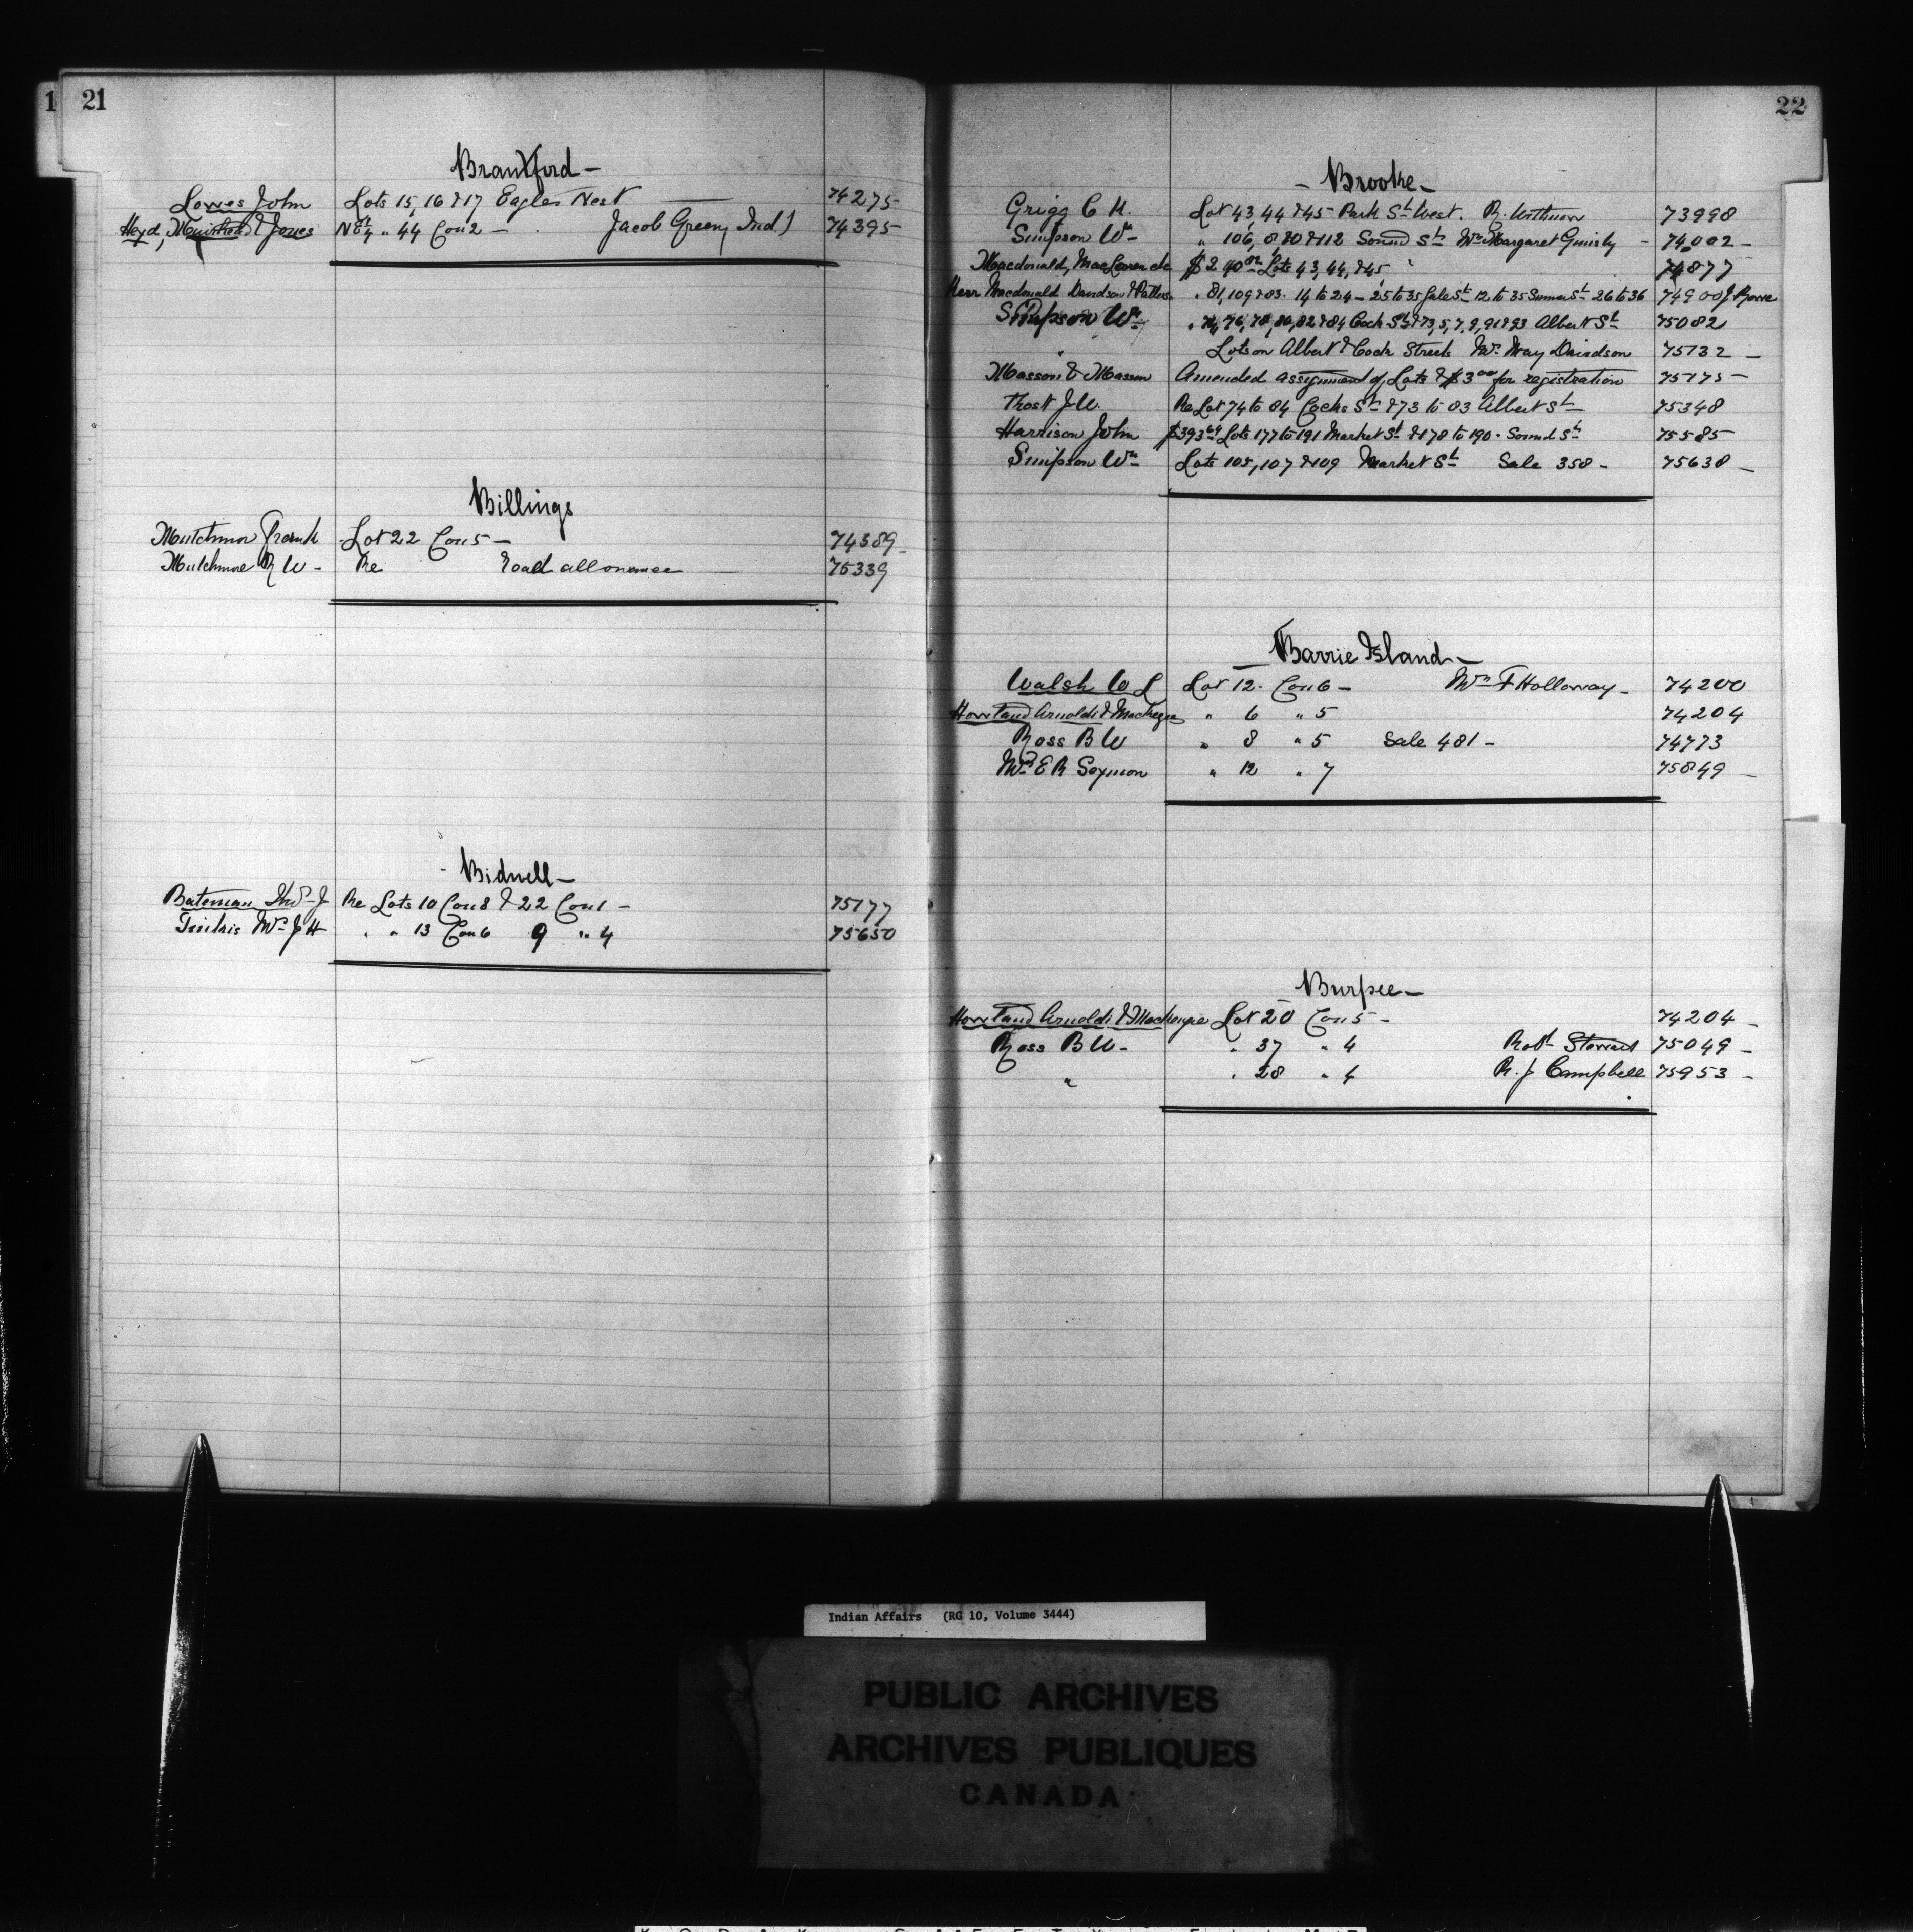 1 21
Brantford -
Lowes John Lots 15, 16 & 17 Eagles Nest 74275
Heyd, & Jones 44 Con 2 - Jacob Green, Ind) 74395
Billings
Mutchmor Frank Lot 22 Con 5 - 74389
Mutchmore R W - Re Road allowance 75339
Bidwell -
Bateman Thos J Re Lots 10 Con 8 & 22 Con 1 - 75177
Mrs J H " " 13 Con 6 9 " 4 75650
22
- Brooke -
Grigg C H. Lot 43, 44 & 45 Park St West. R. 73998
Simpson Wm " 106, 8, 10 & 112 Sound St Mrs Margaret 74002 -
Macdonald, MacLaren etc Lots 43, 44, & 45 74877
Kerr Macdonald Davidson & " 81, 109 & 83. 14 to 24 - 25 to 35 St 12 to 35 St 26 to 36 74900
Simpson Wm " 74, 76, 78, 80, 82 & 84 St & 73, 5, 7, 9, 91 & 93 Albert St 75082
" Lots on Albert & Streets Mrs May Davidson 75132 -
Masson & Masson Amended assignment of Lots & $3.00 for registration 75175 -
Frost J W. Re Lot 74 to 84 St & 73 to 83 Albert St 75348
Harrison John $393.64 Lots 177 to 191 Market St & 178 to 190. Sound St 75585
Simpson Wm Lots 105, 107 & 109 Market St Sale 358 - 75638 -
- Barrie Island -
Walsh W L Lot 12. Con 6 - Wm F Holloway - 74200
Howland Arnoldi & Mackenzie " 6 " 5 74204
Ross B W " 8 " 5 Sale 481 - 74773
Mrs E R " 12 " 7 75849 -
Burpee -
Howland Arnoldi & Mackenzie Lot 20 Con 5 - 74204 -
Ross B W - " 37 " 4 Robt Stewart 75049 -
" " 28 " 4 R. J Campbell 75953 -
Indian Affairs (RG 10, Volume 3444)
PUBLIC ARCHIVES
ARCHIVES PUBLIQUES
CANADA